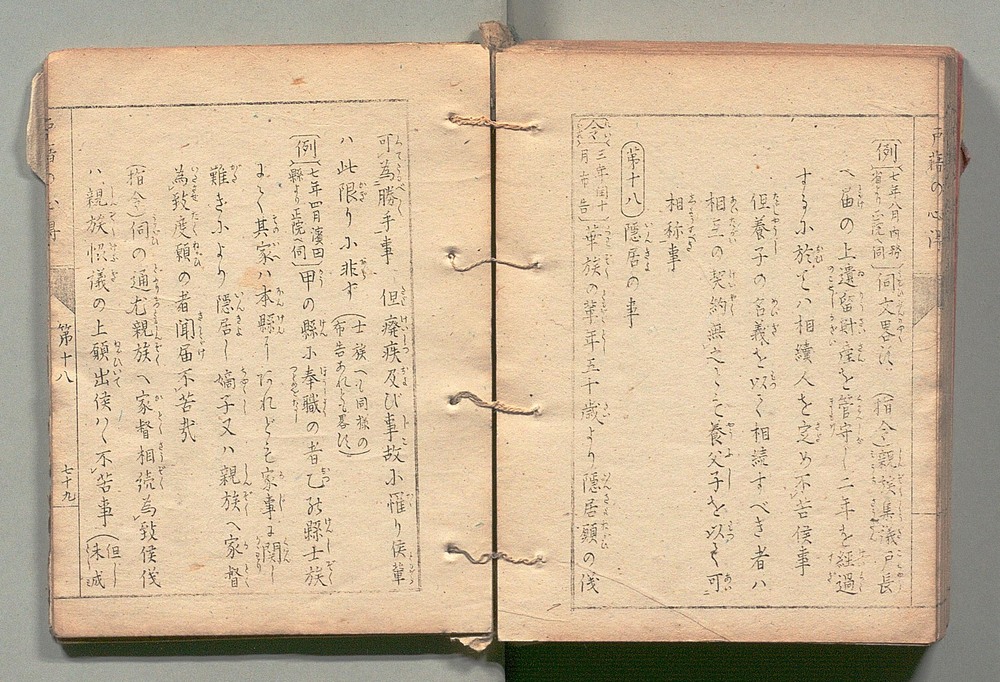 戸籍の心得
例 七年八月内務省より正院へ伺 伺文畧ス (指令)親族集議戸長
へ届の上遺留財産を管守し二年を経過
するに於てハ相續人を定め不苦侯事
但養子の名義を以て相続すべき者ハ
相互の契約無之とも養父子を以て可
相称事
第十八 隠居の事
令 三年閏十月布告 華族の輩年五十歳より隠居願の儀
可為勝手事 但癈疾及び事故に罹り侯輩
ハ此限りに非ず (士族へも同様の布告あれども畧ス)
例 七年四月濱田縣より正院へ伺 甲の縣に奉職の者乙の縣士族
にて其家ハ本縣に
これども家事に関し
難きにより隠居し嫡子又ハ親族へ家督
為致度願の者聞届不苦哉
(指令)伺の通尤親族へ家督相続為致侯儀
ハ親族協議の上願出侯ハヾ不苦事 (但し未成
戸籍の心得
第十八
七十九